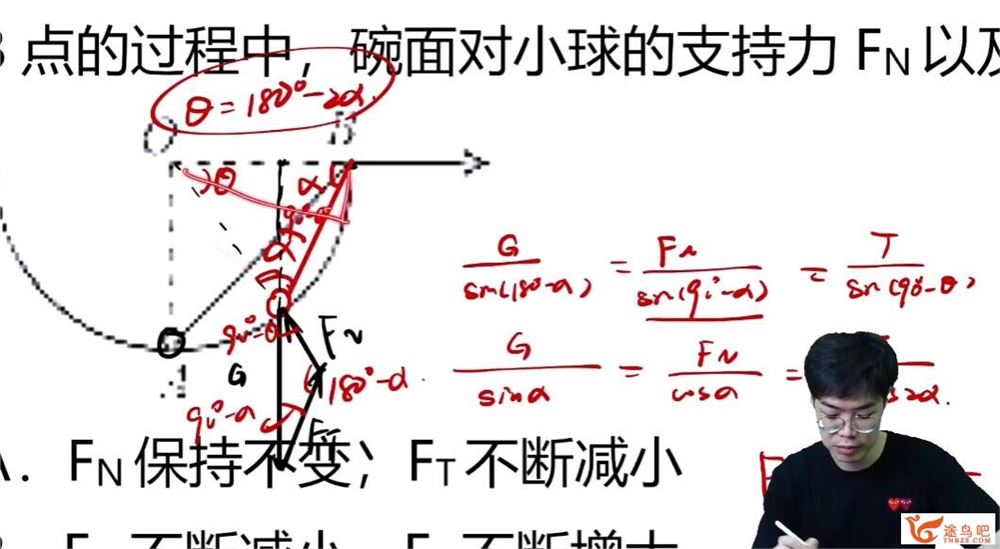 点的过程中，碗面对小球的支持力 FN 以及
θ = 180° - 2α
θ
α
α
90°-θ
FN
G
180°-α
90°-α
FT
G/sin(180°-α) = FN/sin(90°-α) = T/sin(90°-θ)
G/sinα = FN/cosα =
A. FN 保持不变；FT 不断减小
途鸟吧
TNBZS.COM